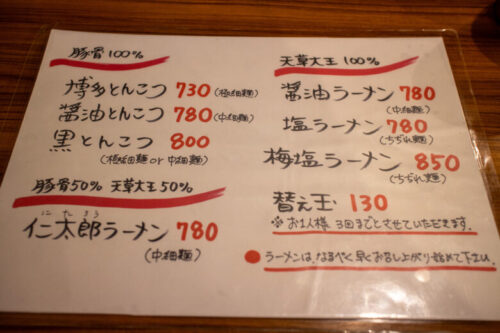 豚骨100%
博多とんこつ 730(極細麺)
醤油とんこつ 780(中細麺)
黒とんこつ 800
(極細麺 or 中細麺)
豚骨50% 天草大王50%
にたろう
仁太郎ラーメン 780
(中細麺)
天草大王 100%
醤油ラーメン 780
(中細麺)
塩ラーメン 780
(ちぢれ麺)
梅塩ラーメン 850
(ちぢれ麺)
替え玉 130
※お1人様 3回までとさせていただきます。
●ラーメンは、なるべく早くお召し上がり始めて下さい。